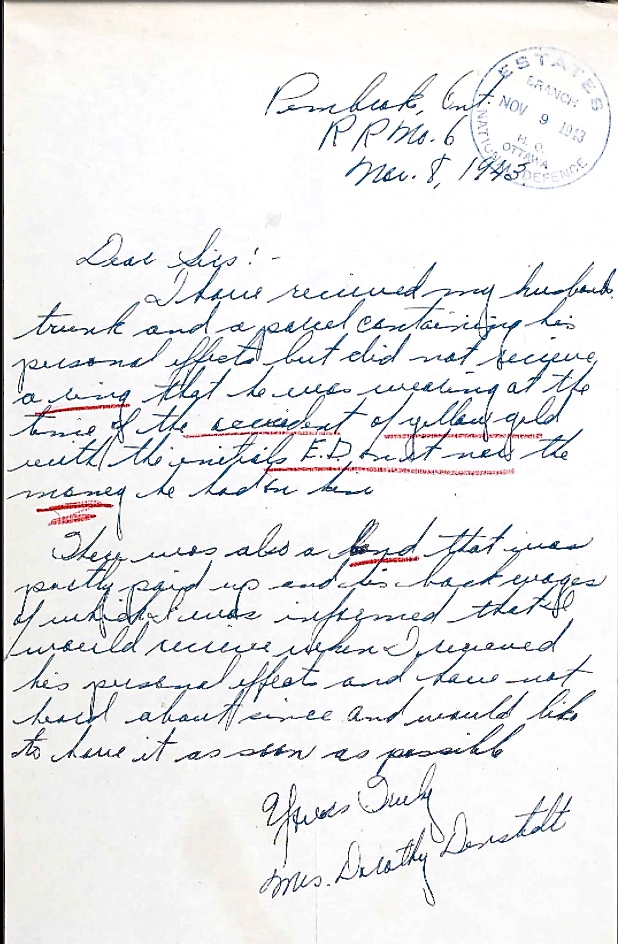 Pembroke, Ont.
R R No. 6
Nov. 8, 1943.
ESTATES
BRANCH
NOV 9 1943
H. Q.
OTTAWA
NATIONAL DEFENCE
Dear Sirs! -
I have recieved my husbands
trunk and a parcel containing his
personal effects but did not recieve
a ring that he was wearing at the
time of the accident of yellow gold
with the initials E.D. on it nor the
money he had on him
There was also a bond that was
partly paid up and his back wages
of which I was informed that I
would recieve when I recieved
his personal effects and have not
heard about since and would like
to have it as soon as possible
Yours Truly
Mrs. Dorothy Denstedt